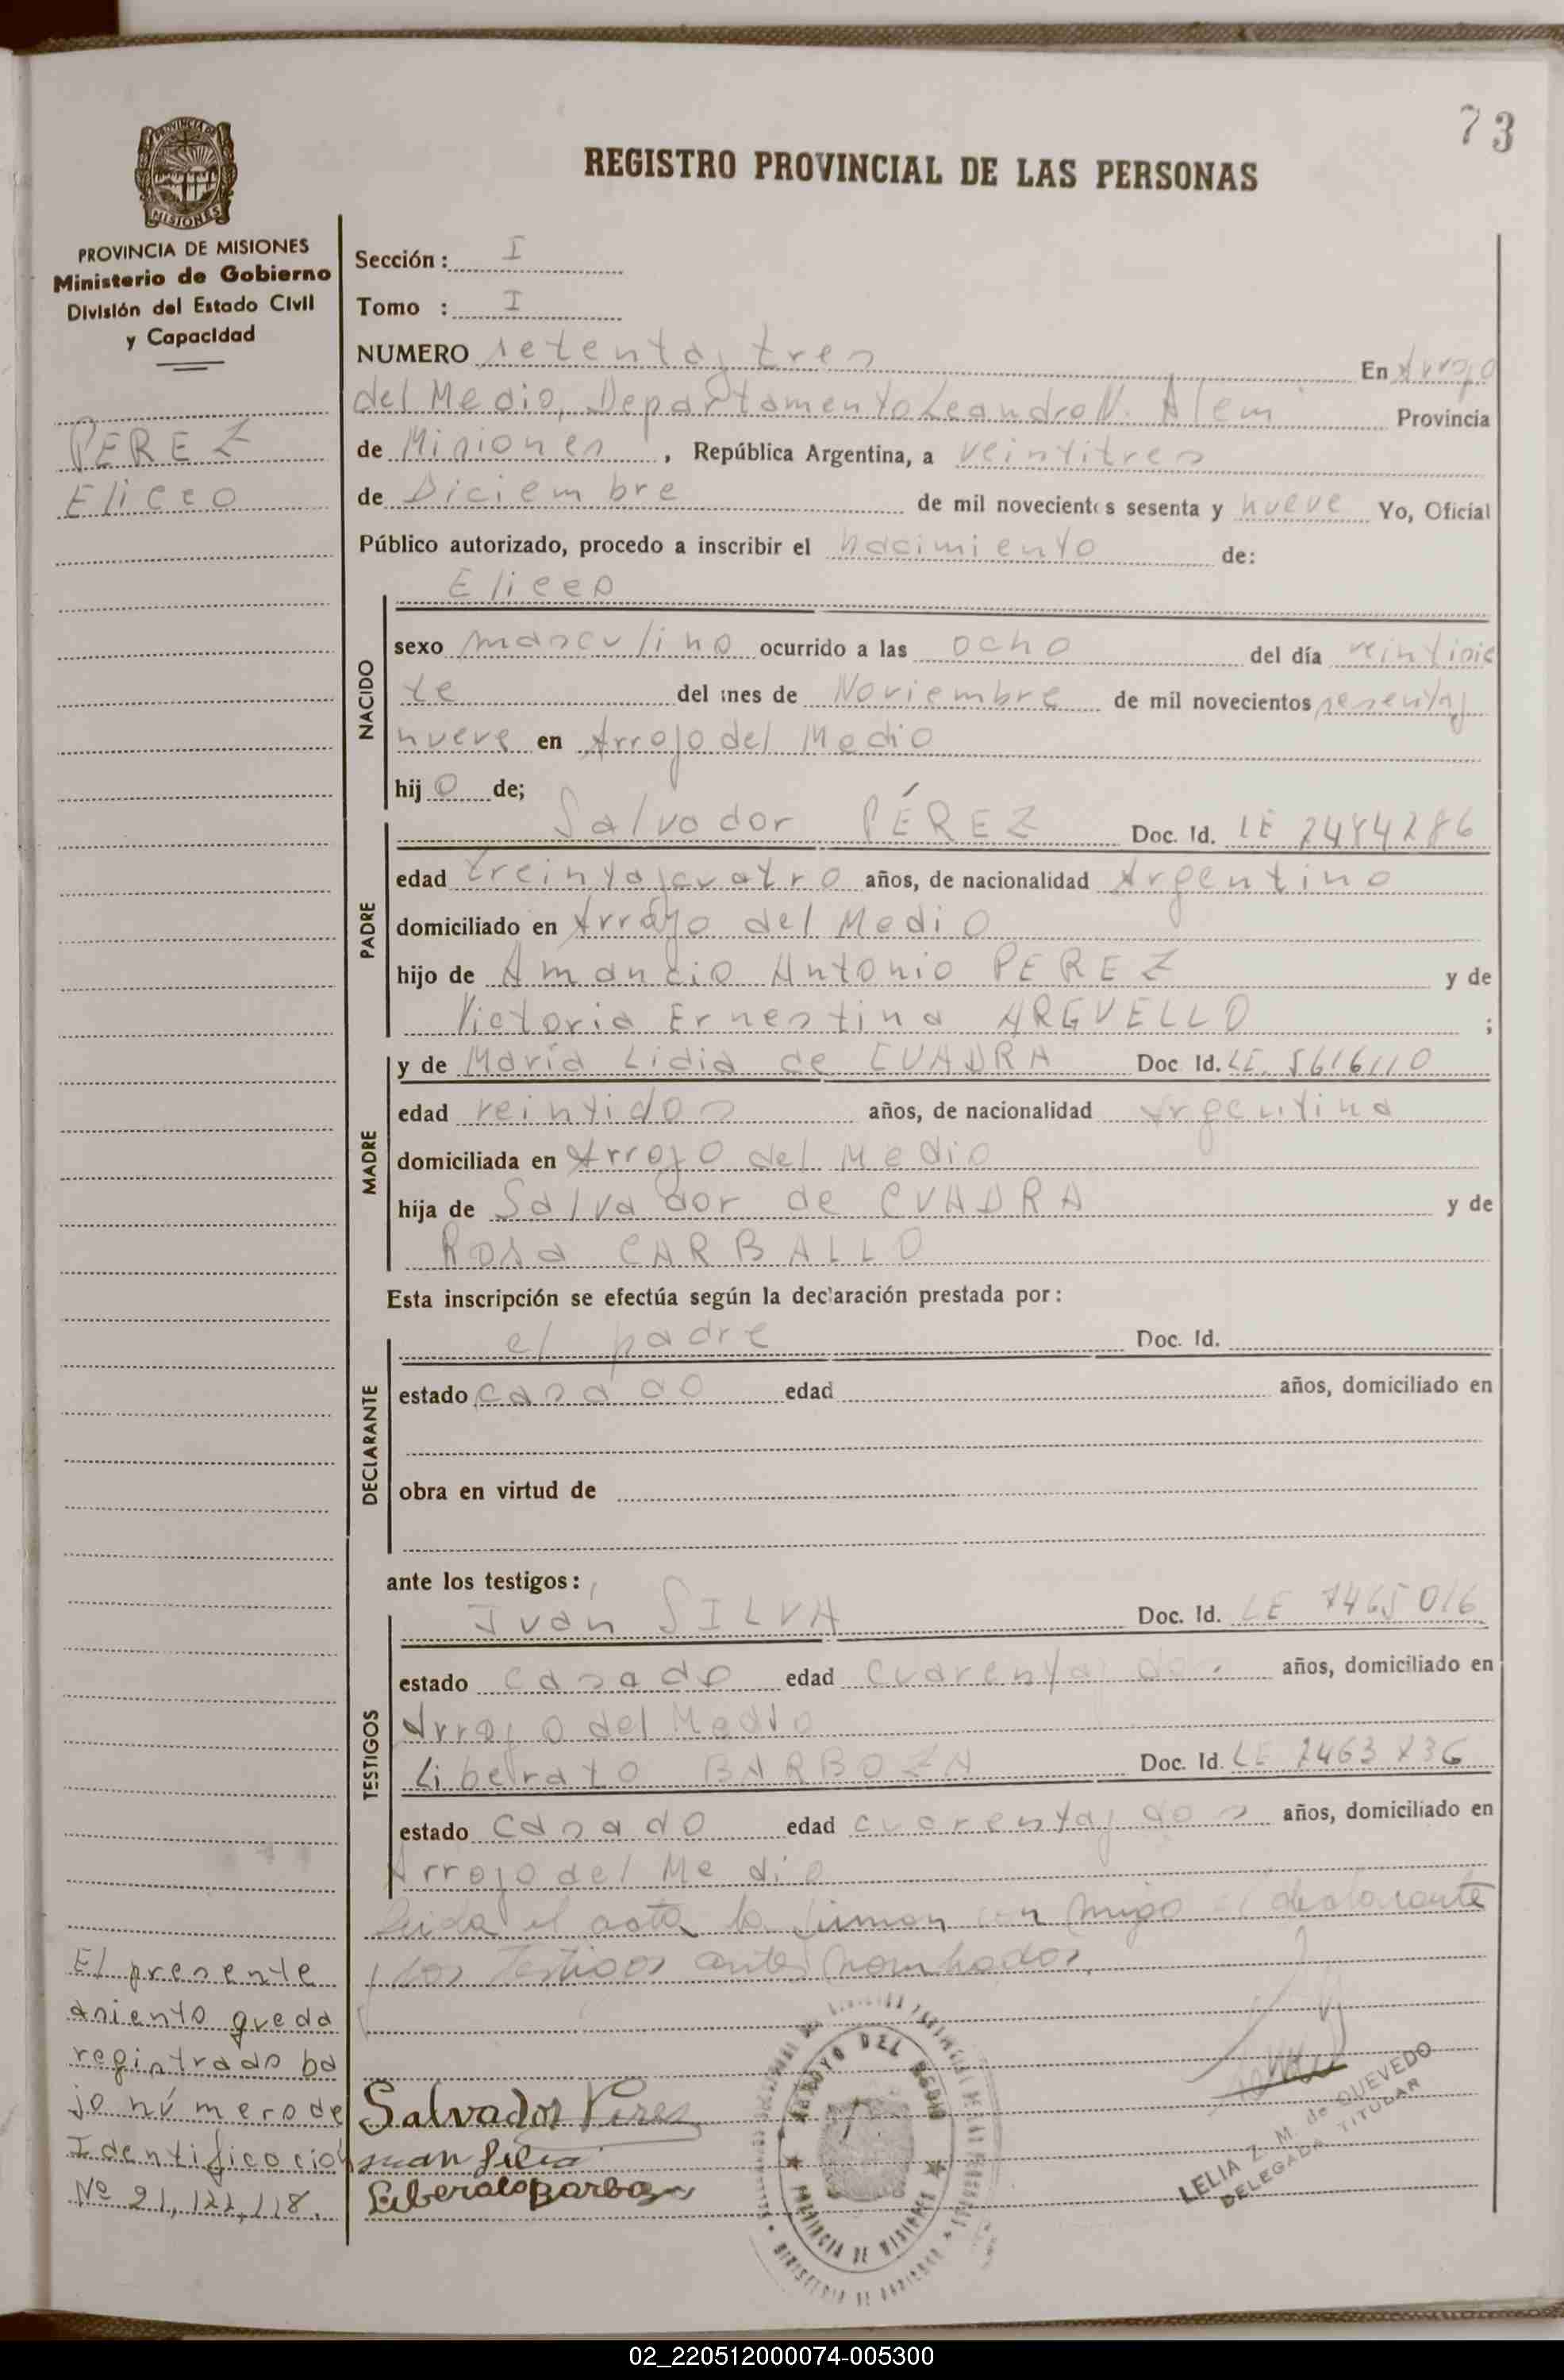 73
REGISTRO PROVINCIAL DE LAS PERSONAS
PROVINCIA DE MISIONES
Ministerio de Gobierno
División del Estado Civil
y Capacidad
PEREZ
Eliceo
Sección : I
Tomo : I
NUMERO setenta y tres En Arroyo
del Medio, Departamento Leandro N. Alem Provincia
de Misiones, República Argentina, a veintitres
de Diciembre de mil novecientos sesenta y nueve Yo, Oficial
Público autorizado, procedo a inscribir el nacimiento de:
Eliceo
NACIDO
sexo masculino ocurrido a las ocho del día veintisie
te del mes de Noviembre de mil novecientos sesenta y
nueve en Arroyo del Medio
hijo de;
PADRE
Salvador PÉREZ Doc. Id. LE
edad treinta y cuatro años, de nacionalidad Argentino
domiciliado en Arroyo del Medio
hijo de Amancio Antonio PEREZ y de
Victoria Ernestina ARGUELLO ;
MADRE
y de María Lidia de CUADRA Doc Id. LE. 5616110
edad veintidos años, de nacionalidad Argentina
domiciliada en Arroyo del Medio
hija de Salvador de CUADRA y de
Rosa CARBALLO
Esta inscripción se efectúa según la declaración prestada por:
DECLARANTE
el padre Doc. Id.
estado casado edad años, domiciliado en
obra en virtud de
ante los testigos:
TESTIGOS
Juan SILVA Doc. Id. LE 7465016
estado casado edad cuarenta y dos años, domiciliado en
Arroyo del Medio
Liberato BARBOZA Doc. Id. LE
estado casado edad cuarenta y dos años, domiciliado en
Arroyo del Medio
Leida el acta la firman con migo el declarante
y los testigos antes nombrados.
El presente
asiento queda
registrado ba
jo número de
Identificación
Nº 21,122,118.
Salvador Peres
Juan Silva
Liberato Barboza
ARROYO DEL MEDIO
PROVINCIA DE MISIONES
LELIA Z. M. de QUEVEDO
DELEGADA TITULAR
02_220512000074-005300